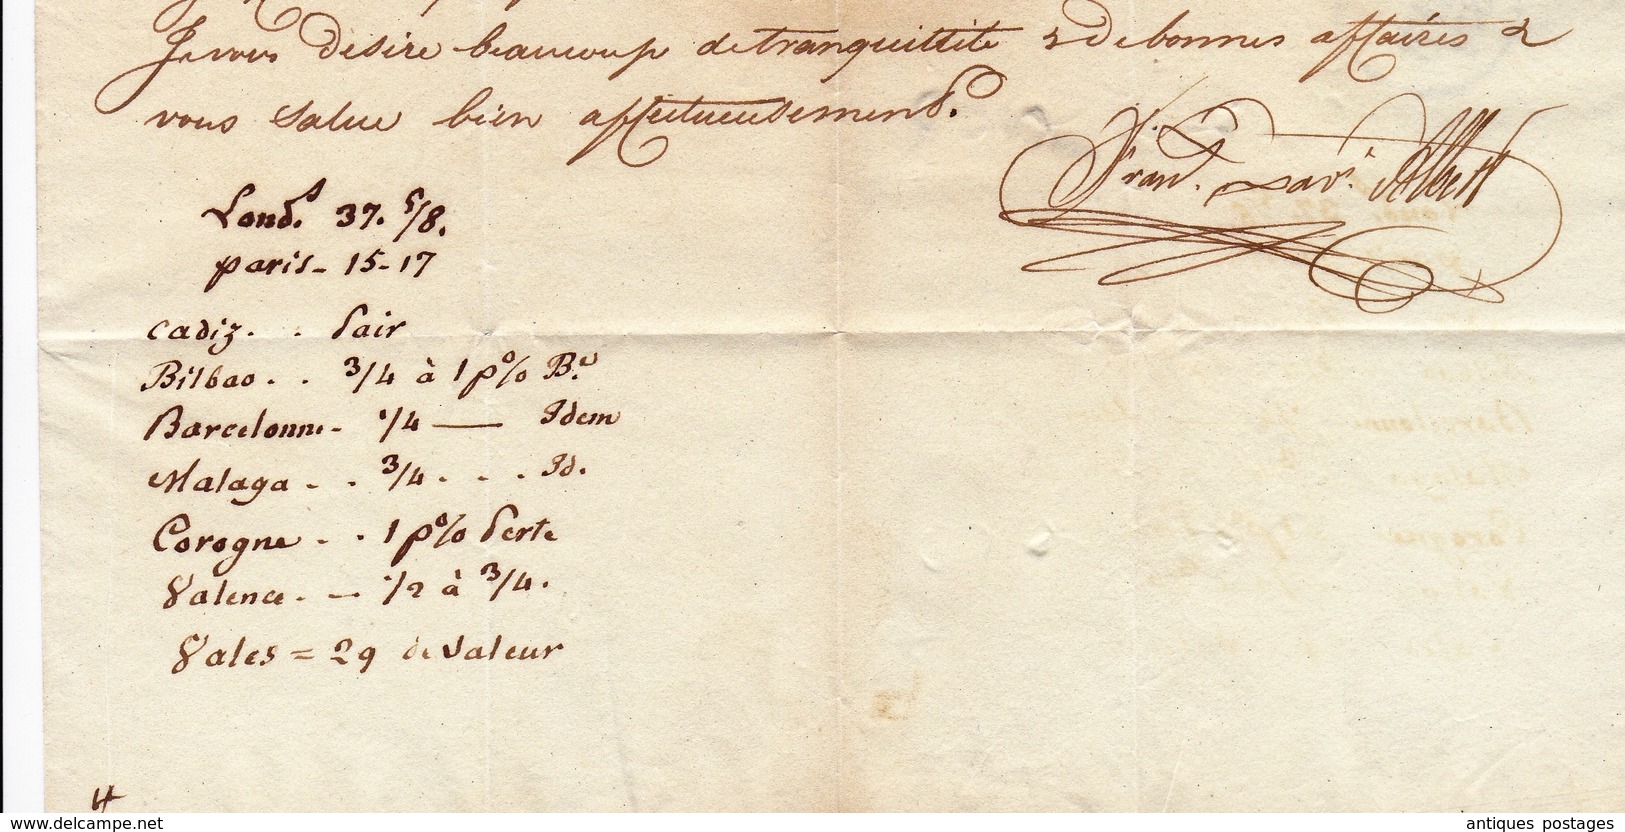 Je vous désire beaucoup de tranquillité & de bonnes affaires &
vous salue bien affectueusement.
Fran. Xav.r Albert
Lond.s 37. 5/8.
paris - 15-17
Cadiz . . Pair
Bilbao . . 3/4 à 1 p% B.e
Barcelonne - 1/4 — Idem
Malaga . . 3/4 . . . Id.
Corogne . . 1 p% Perte
Valence . — 1/2 à 3/4.
Vales = 29 de valeur
www.delcampe.net
antiques postages